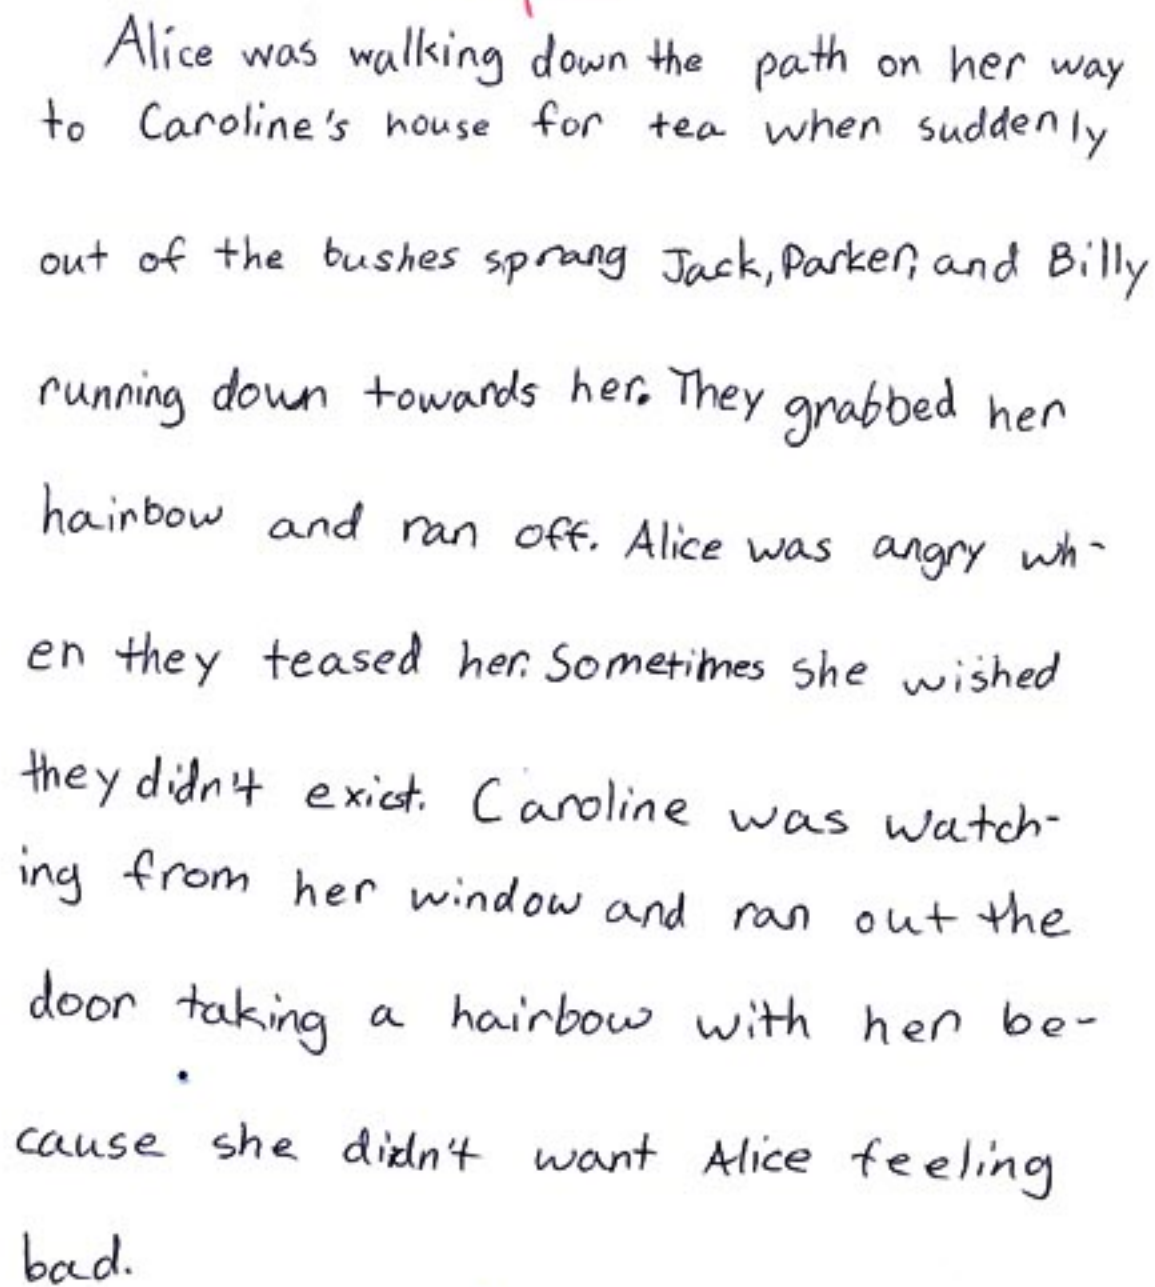 Alice was walking down the path on her way
to Caroline's house for tea when suddenly
out of the bushes sprang Jack, Parker, and Billy
running down towards her. They grabbed her
hairbow and ran off. Alice was angry wh-
en they teased her. Sometimes she wished
they didn't exist. Caroline was watch-
ing from her window and ran out the
door taking a hairbow with her be-
cause she didn't want Alice feeling
bad.